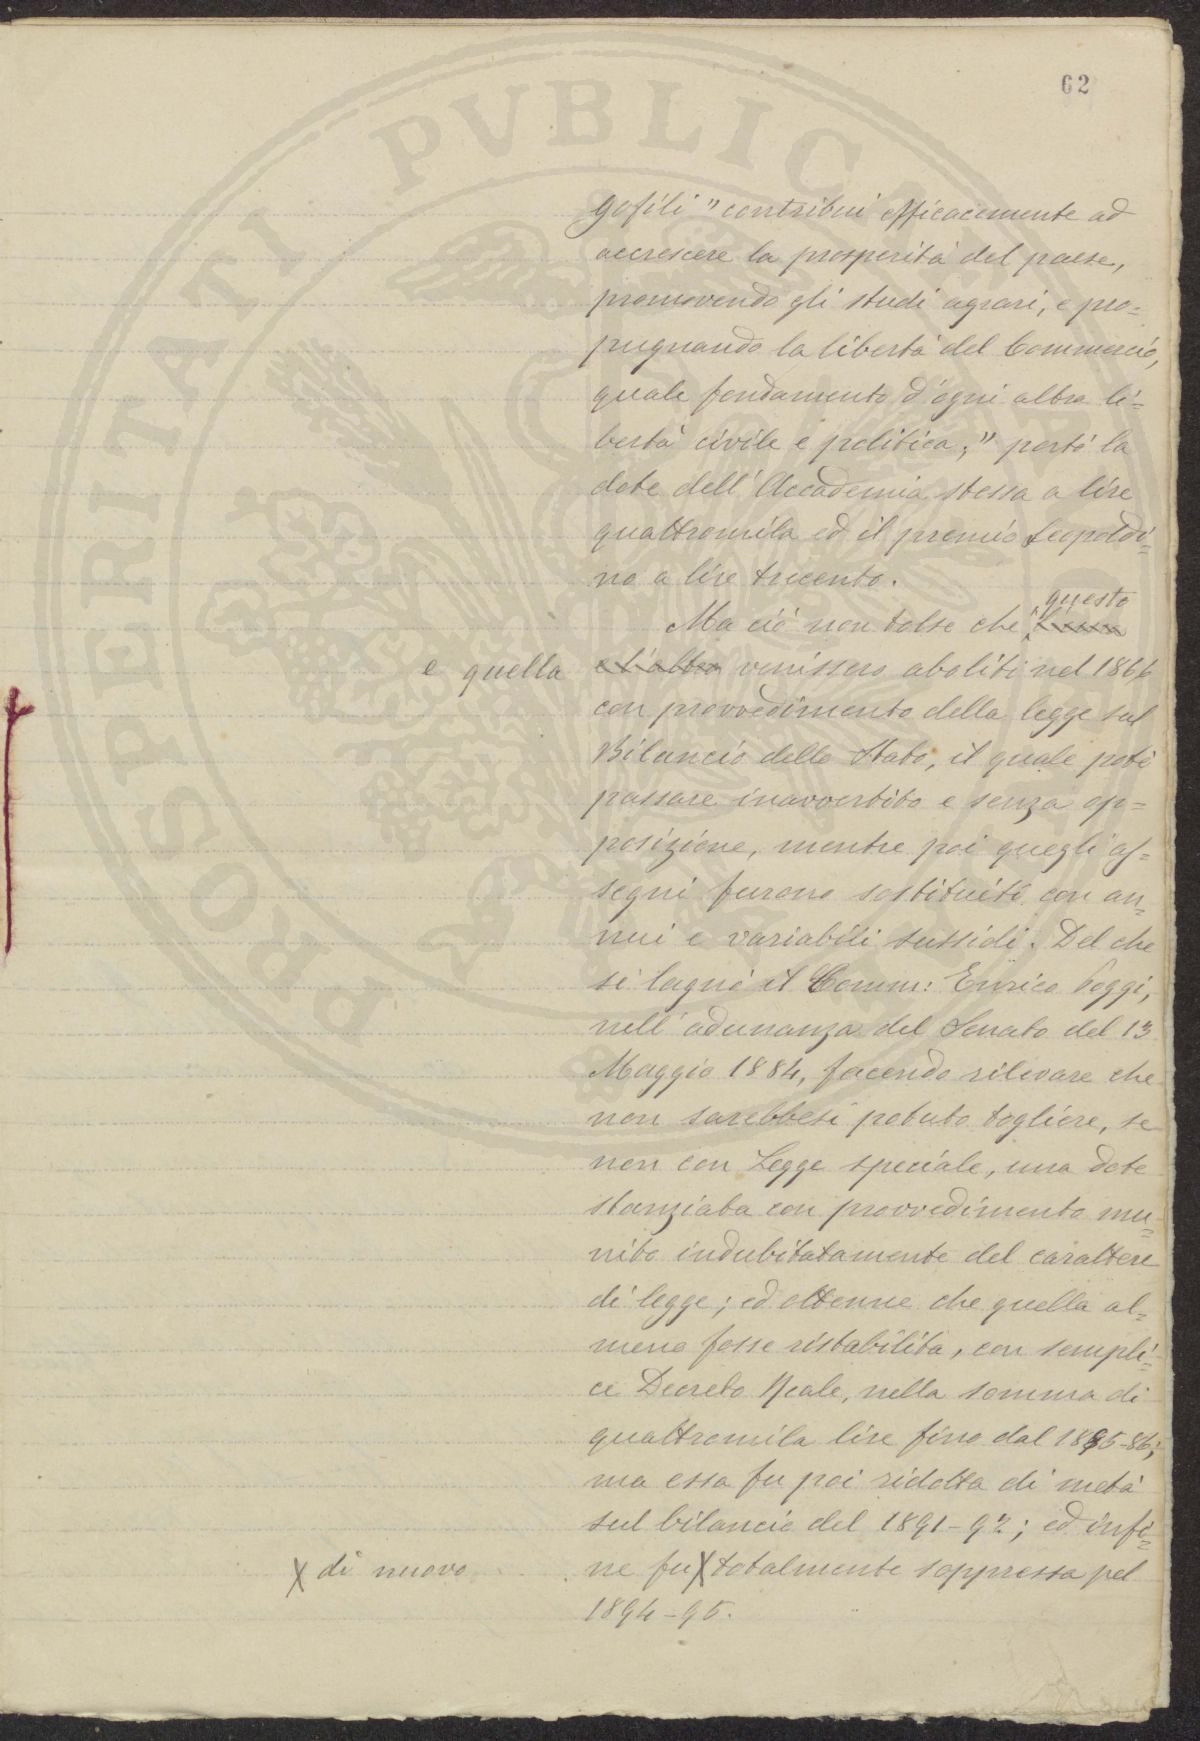 62
gofili" contribuì efficacemente ad
accrescere la prosperità del paese,
promovendo gli studi agrari, e pro=
pugnando la libertà del Commercio,
quale fondamento d'ogni altra li=
bertà civile e politica," portò la
dote dell'Accademia stessa a lire
quattromila ed il premio Leopoldi=
no a lire trecento.
questo
Ma ciò non tolse che l'una
e quella e l'altro venissero aboliti nel 1866
con provvedimento della legge sul
Bilancio dello Stato, il quale potè
passare inavvertito e senza op=
posizione, mentre poi quegli as=
segni furono sostituiti con an=
nui e variabili sussidi. Del che
si lagnò il Comm: Enrico Poggi,
nell'adunanza del Senato del 13
Maggio 1884, facendo rilevare che
non sarebbesi potuto togliere, se
non con Legge speciale, una dote
stanziata con provvedimento mu=
nito indubitatamente del carattere
di legge; ed ottenne che quella al=
meno fosse ristabilita, con sempli=
ce Decreto Reale, nella somma di
quattromila lire fino dal 1885-86;
ma essa fu poi ridotta di metà
sul bilancio del 1891-92; ed infi=
X di nuovo ne fu X totalmente soppressa pel
1894-95.
PROSPERITATI PVBLICAE